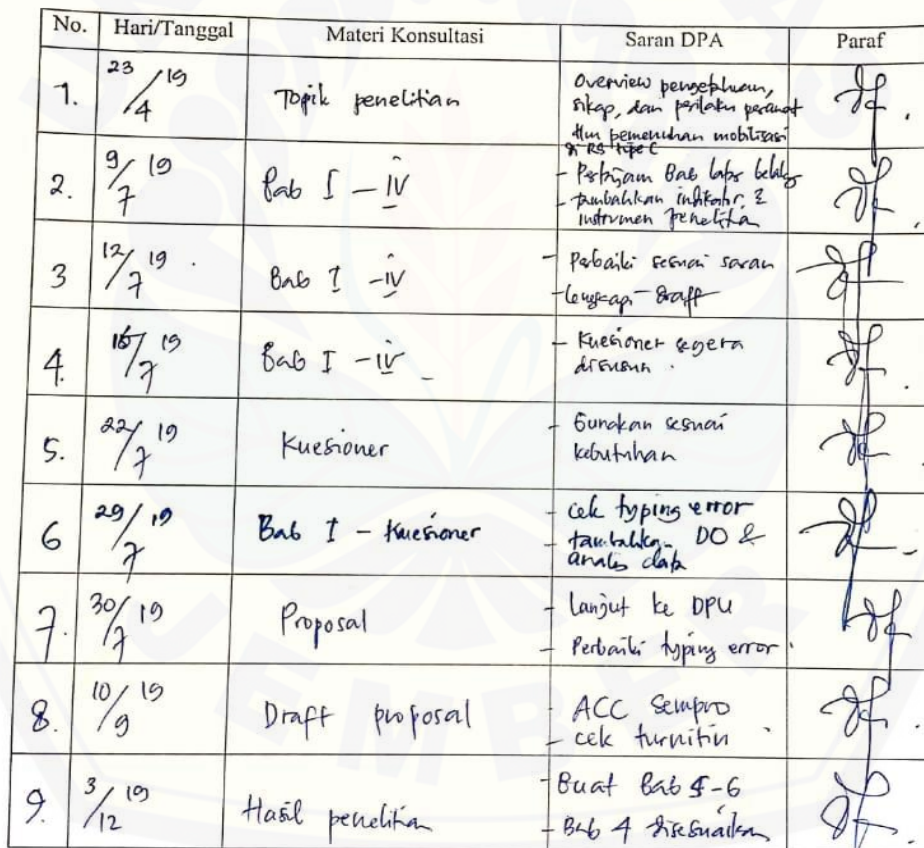 No. Hari/Tanggal Materi Konsultasi Saran DPA Paraf
1. 23/4 19 Topik penelitian Overview pengetahuan,
sikap, dan perilaku perawat
dlm pemenuhan mobilisasi
di RS tipe C
2. 9/7 19 Bab I - IV - Pertajam Bab latar belakg
- tambahkan indikator &
instrumen penelitian
3 12/7 19 Bab I - IV - Perbaiki sesuai saran
- lengkapi draff
4. 16/7 19 Bab I - IV - Kuesioner segera
disusun.
5. 22/7 19 Kuesioner - Gunakan sesuai
kebutuhan
6 29/7 19 Bab I - Kuesioner - cek typing error
- tambahkan DO &
analis data
7. 30/7 19 Proposal - Lanjut ke DPU
- Perbaiki typing error.
8. 10/9 19 Draft proposal - ACC Sempro
- cek turnitin
9. 3/12 19 Hasil penelitian - Buat Bab 5-6
- Bab 4 disesuaikan
JEMBER